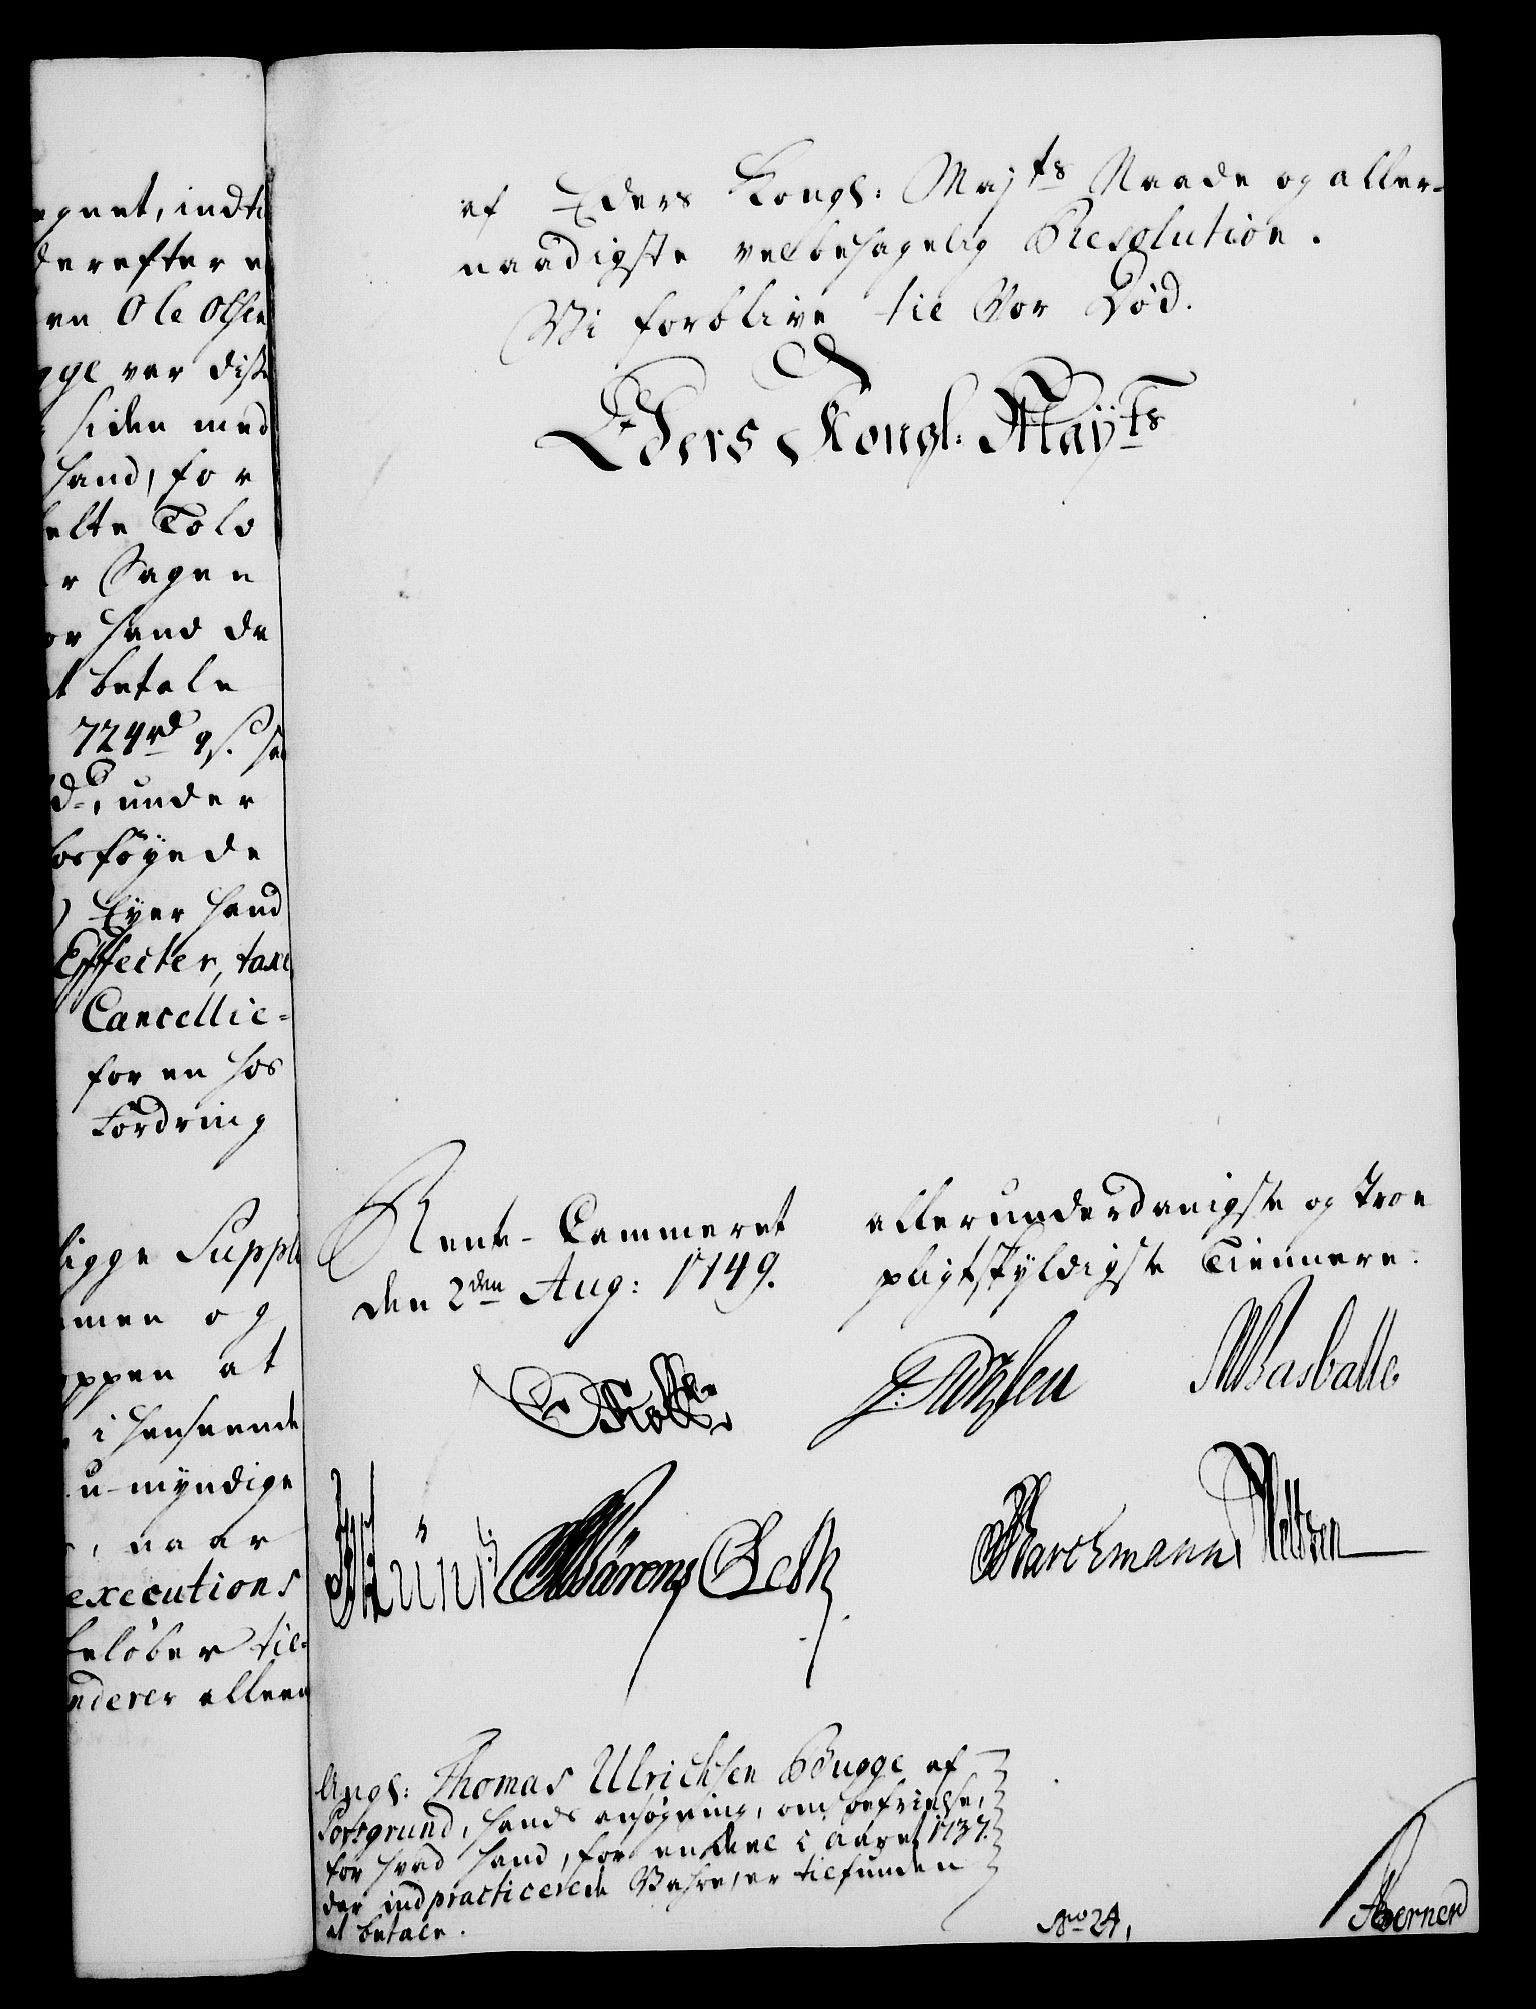 egnet, indti
derefter e
en Ole Olsen
gge var disse
siden med
hand, for
elte Told
er Sagen
or hand de
at betale
724 rd
under
hosføyede
Eyer hand
Effecter, taxe
Cancellie=
for en hos
Fordring
ligge Suppli
men og
oppen at
i henseende
u-myndige
, naar
executions
beløber til=
nderer alleene
af Eders Kongl: Majts Naade og aller-
naadigste velbehagelig Resolution.
Vi forblive til Vor Død.
Eders Kongl: Mayts
Rente-Cammeret
den 2den Aug: 1749.
allerunderdanigste og troe
pligtskyldigste Tiennere.
Holste
Wasballe
Wørens Lesth
Barchmann Neltzen
Angl: Thomas Ulrichsen Bugge af
Porsgrund, hands ansøgning, om befrielse,
for hvad hand, for en deel i aaret 1737.
der indpracticerede Vahre, er tilfunden
at betale.
No 24,
Berner